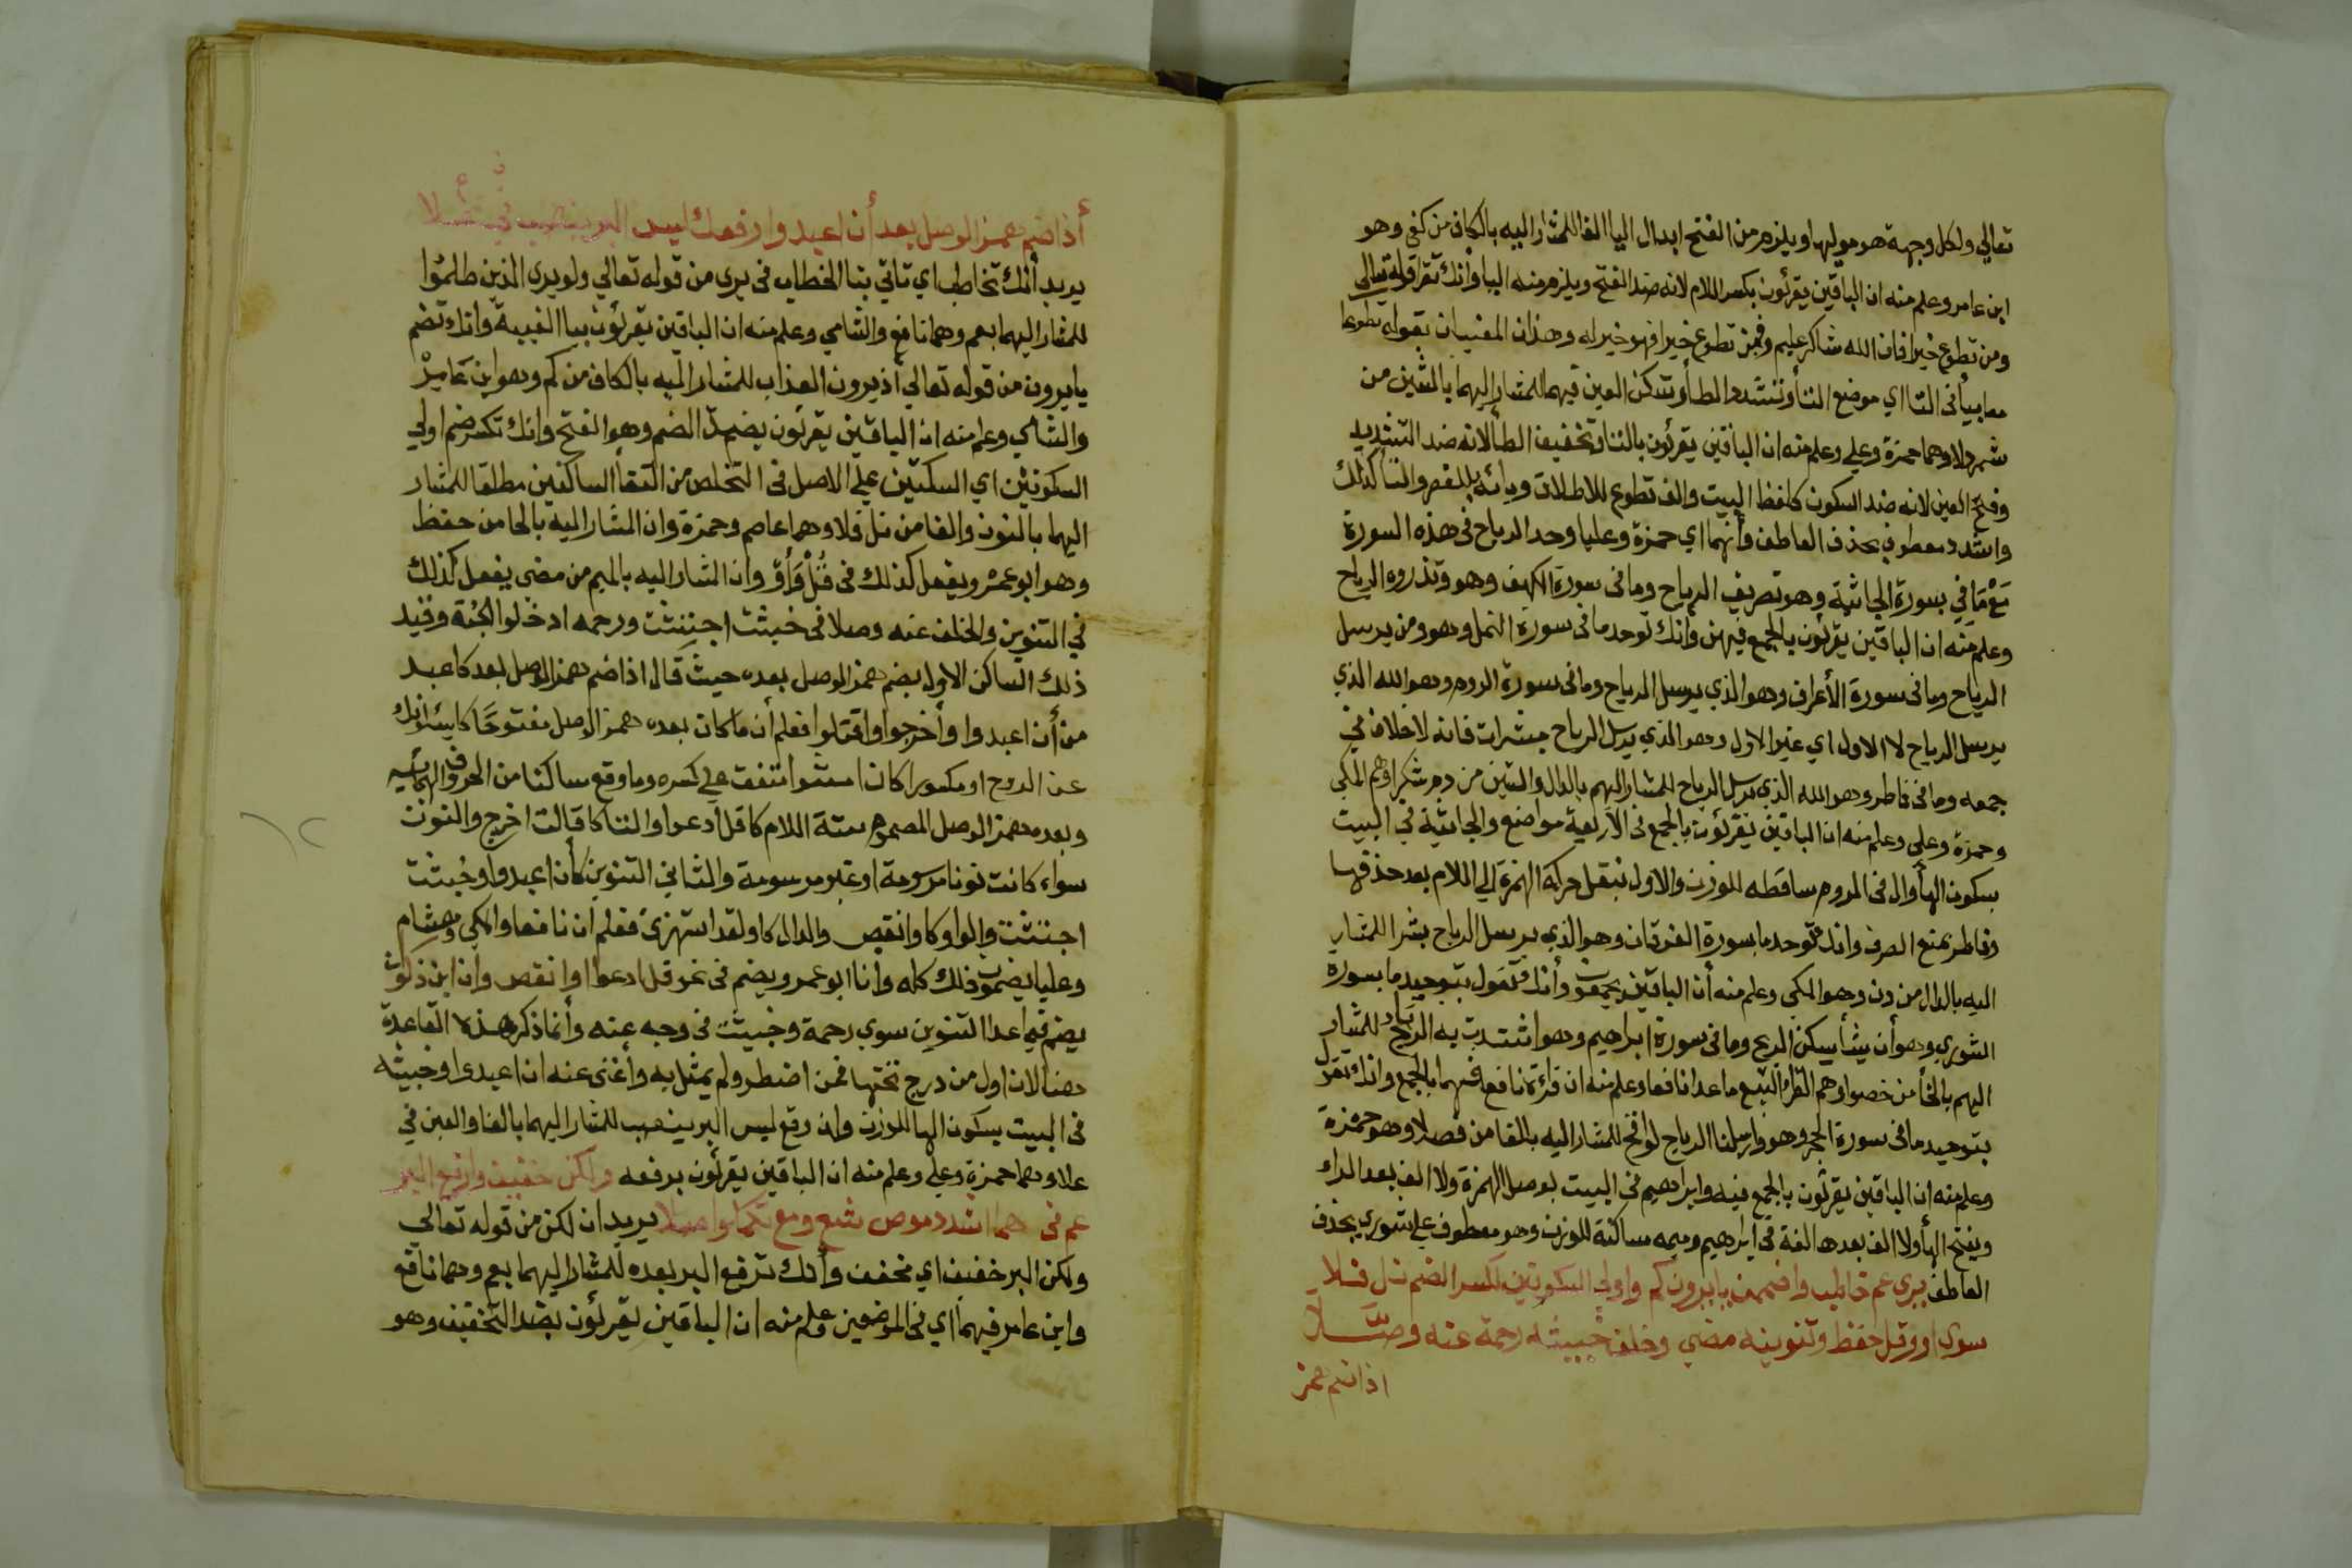 تعالي ولكل وجهة هو موليها ويلزم من الفتح ابدال اليا الفا للمشار اليه بالكاف من كفى وهو
ابن عامر وعلم منه ان الباقين يقرئون بكسر اللام لانه ضد الفتح ويلزم منه اليا وانك تقرا قوله تعالى
ومن تطوع خيرا فان الله شاكر عليم وفمن تطوع خيرا فهو خير له وهذان المعنيان بقوله تطوعا
معا بيا في التا اي موضع التا وتشدد الطا وتسكن العين فيهما للمشار اليهما بالشين من
شمردلا وهما حمزة وعلي وعلم منه ان الباقين يقرئون بالتا وتخفيف الطا لانه ضد التشديد
وفتح العين لانه ضد السكون كلفظ البيت والف تطوع للاطلاق ويائه بالقصر والتا كذلك
واشدد معطوف بحذف العاطف وانهما اي حمزة وعليا وحد الرياح في هذه السورة
مع ما في سورة الجاثية وهو تصريف الرياح وما في سورة الكهف وهو وتذروه الرياح
وعلم منه ان الباقين يقرئون بالجمع فيهن وانك توحد ما في سورة النمل وهو ومن يرسل
الرياح وما في سورة الأعراف وهو الذي يرسل الرياح وما في سورة الروم وهو الله الذي
يرسل الرياح لا الاول اي غير الاول وهو الذي يرسل الرياح مبشرات فانه لا خلاف في
جمعه وما في فاطر وهو الله الذي يرسل الرياح للمشار اليهم بالدال والشين من دم شكرا وهم المكي
وحمزة وعلي وعلم منه ان الباقين يقرئون بالجمع في الاربعة مواضع والجاثية في البيت
بسكون الهأ وال في الروم ساقطه للوزن والاول بنقل حركة الهمزة الي اللام بعد حذفها
وفاطر بمنع الصرف وانك توحد ما بسورة الفرقان وهو الذي يرسل الرياح بشرا للمشار
اليه بالدال من دن وهو المكي وعلم منه أن الباقين يجمعون وأنك تقول بتوحيد ما بسورة
الشوري وهو أن يشأ يسكن الريح وما في سورة ابراهيم وهو اشتدت به الريح للمشار
اليهم بالخأ من خصوا وهم القراء السبع ما عدا نافعا وعلم منه ان قرائة نافع فيهما بالجمع وانك تقول
بتوحيد ما في سورة الحجر وهو وارسلنا الرياح لواقح للمشار اليه بالفا من فصلا وهو حمزة
وعلم منه ان الباقين يقرئون بالجمع فيه وابراهيم في البيت بوصل الهمزة ولا الف بعد الراء
وبفتح الهأ ولا الف بعدها لغة في ابراهيم وميمه ساكنة للوزن وهو معطوف علي شوري بحذف
العاطف يرى عم خاطب واضممن يا يرون كم واولي السكونين لكسر الضم نل فلا
سوي او وقل حفظ وتنوينه مضي وخلف خبيثه رحمة عنه وصلا
اذا ضم همز
أذا ضم همز الوصل بعد أن اعبدوا وارفعك ليس البر ينصب في علا
يريد أنك تخاطب اي تاتي بتا الخطاب في يرى من قوله تعالي ولو يرى الذين ظلموا
للمشار اليهما بعم وهما نافع والشامي وعلم منه ان الباقين يقرئون بيا الغيبة وانك تضم
يا يرون من قوله تعالي أذ يرون العذاب للمشار اليه بالكاف من كم وهو ابن عامر
والشامي وعلم منه ان الباقين يقرئون بضد الضم وهو الفتح وانك تكسر ضم اولي
السكونين اي السكنين علي الاصل في التخلص من التقأ الساكنين مطلقا للمشار
اليهما بالنون والفا من نل فلا وهما عاصم وحمزة وان المشار اليه بالحا من حفظ
وهو ابو عمرو يفعل كذلك في قُلْ وَأَوْ وان المشار اليه بالميم من مضي يفعل كذلك
في التنوين والخلف عنه وصلا في خبيثت اجتثت ورحمه ادخلوا الجنة وقيد
ذلك الساكن الاول بضم همز الوصل بعده حيث قال اذا ضم همز الوصل بعد كاعبد
من أن اعبدوا وأخرجوا واقتلوا فعلم أن ما كان بعده همز الوصل مفتوحا كايسئلونك
عن الروح او مكسورا كان امشوا متفق علي كسره وما وقع ساكنا من الحروف الهجائيه
وبعده همز الوصل المضموم ستة اللام كقل ادعوا والتا كا قالت اخرج والنون
سواء كانت نونا مرسومة او غير مرسومة والثاني التنوين كأن اعبدوا وخبيثت
اجتثت والواو كا وانقص والدال كا ولقد استهزئ فعلم أن نافعا والمكي وهشام
وعليا يضمون ذلك كله وأنا ابو عمرو يضم في نحو قل ادعوا او انقص وان ابن ذكوان
يضم فيما عدا التنوين سوي رحمة وخبيثت في وجه عنه وأنما ذكر هذه القاعدة
هنا لان اول من درج تحتها فمن اضطر ولم يمثل به وأغني عنه ان اعبدوا وخبيثه
في البيت بسكون الها للوزن وان رفع ليس البر ينصب للمشار اليهما بالفا والعين في
علا وهما حمزة وعلي وعلم منه ان الباقين يقرئون برفعه ولكن خفيف وارفع البر
عم في هما اشدد موص شع ومع تكملوا صلا يريد ان لكن من قوله تعالي
ولكن البر خفيف اي مخفف وأنك ترفع البر بعده للمشار اليهما بعم وهما نافع
وابن عامر فيهما اي في الموضعين وعلم منه ان الباقين يقرئون بضد التخفيف وهو